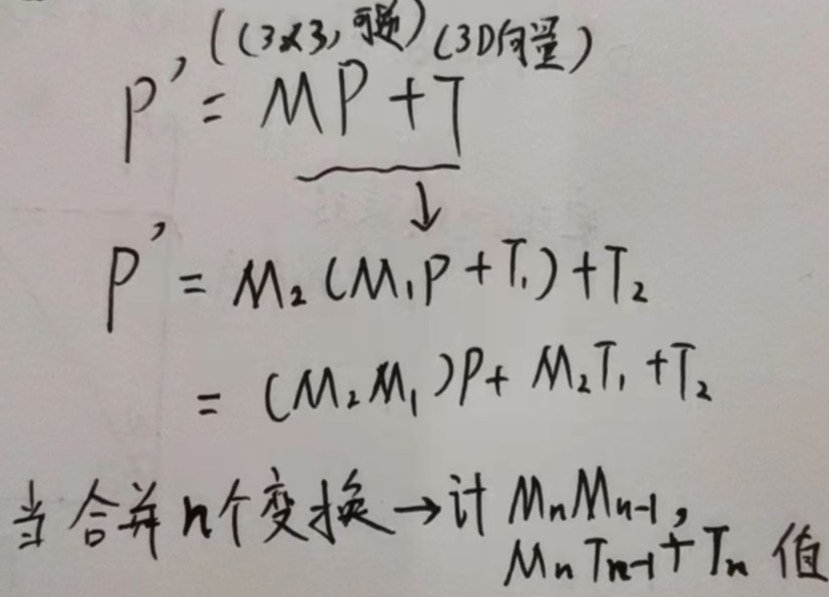 ((3×3, 可逆) (3D向量)
P' = MP + T
↓
P' = M₂(M₁P + T₁) + T₂
= (M₂M₁)P + M₂T₁ + T₂
当合并n个变换→计 MₙMₙ₋₁,
MₙTₙ₋₁ + Tₙ 值